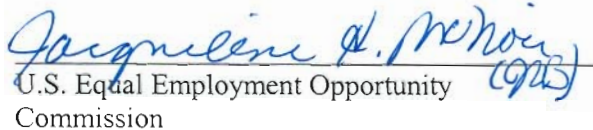 Jacqueline H. McNair
(JRB)
U.S. Equal Employment Opportunity
Commission